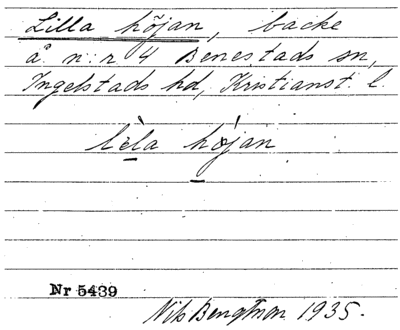 Lilla höjan, backe
å n:r 4 Benestads sn,
Ingelstads hd, Kristianst. l.
lèla højan
Nr 5439
Nils Bengtson 1935.